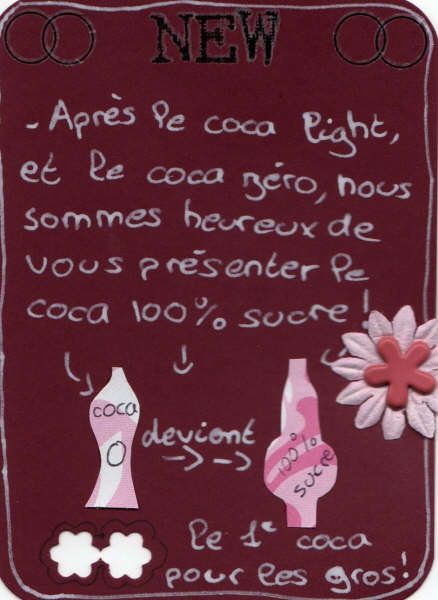 NEW
- Après le coca light,
et le coca zéro, nous
sommes heureux de
vous présenter le
coca 100% sucre !
coca
0
devient
100%
sucre
le 1e coca
pour les gros!